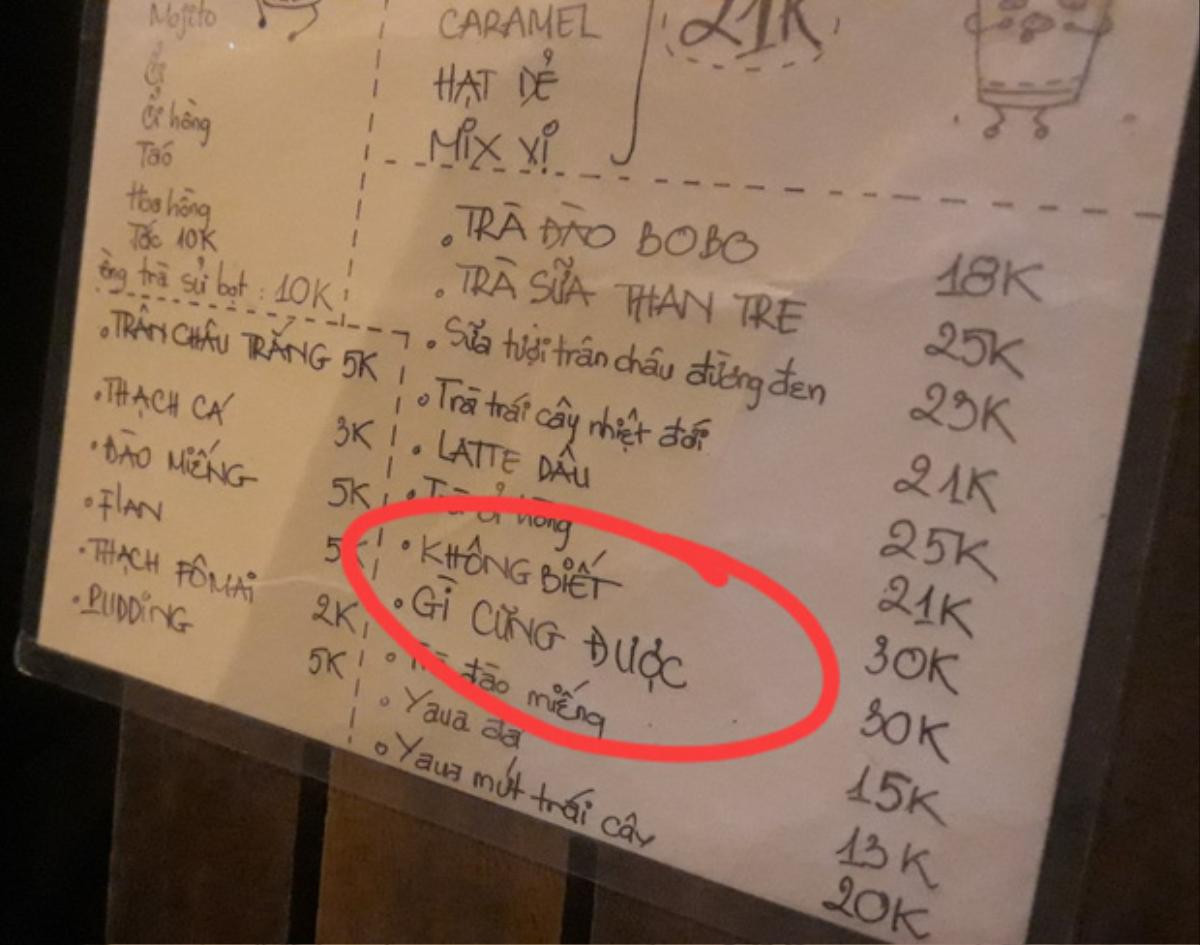 Mojito
Ổi
Ổi hồng
Táo
Hoa hồng
Tắc 10K
trà sủi bọt : 10K
CARAMEL
HẠT DẺ
MIX VỊ
21K
• TRÂN CHÂU TRẮNG 5K
• THẠCH CÁ 3K
• ĐÀO MIẾNG 5K
• Flan 5K
• THẠCH FÔMAI 2K
• PUDDING 5K
• TRÀ ĐÀO BOBO 18K
• TRÀ SỮA THAN TRE 25K
• Sữa tươi trân châu đường đen 23K
• Trà trái cây nhiệt đới 21K
• LATTE DÂU 25K
• Trà ổi hồng 21K
• KHÔNG BIẾT 30K
• GÌ CŨNG ĐƯỢC 30K
• Trà đào miếng 15K
• Yaua đá 13K
• Yaua mứt trái cây 20K